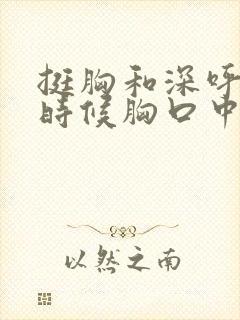 挺胸和深呼
时候胸口中
以然之南